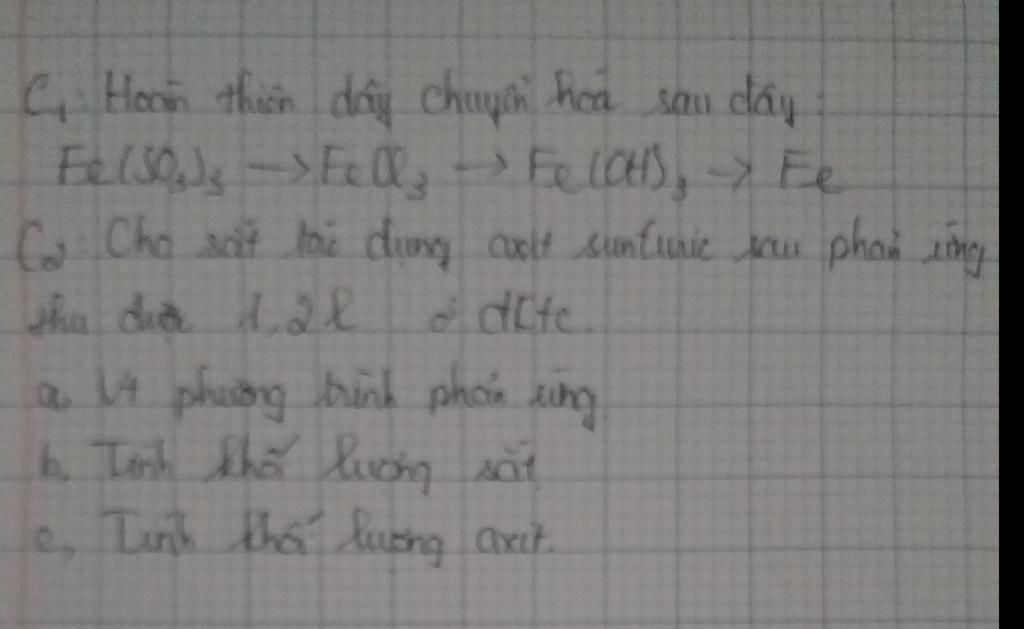 C₁: Hoàn thiện dãy chuyển hoá sau đây:
Fe(SO₄)₃ → FeCl₃ → Fe(OH)₃ → Fe
C₂: Cho sắt tác dụng axit sunfuric sau phản ứng
thu được 1,2l ở đktc.
a, Vt phương trình phản ứng
b, Tính khối lượng sắt
c, Tính khối lượng axit.